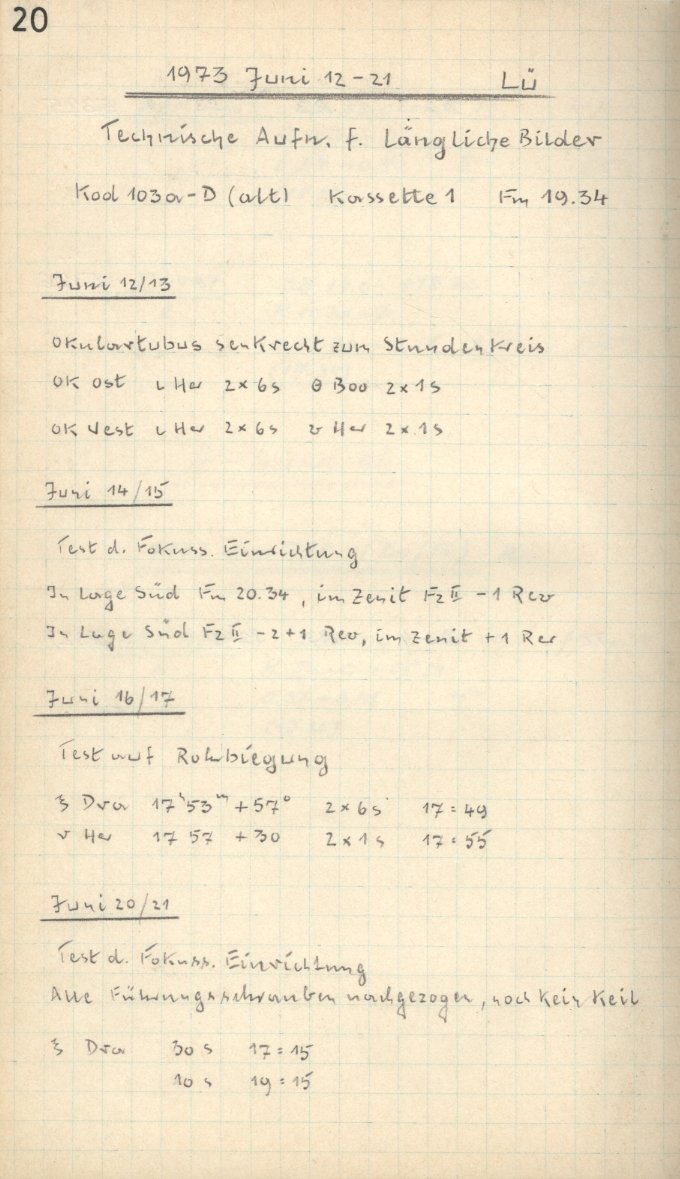 20
1973 Juni 12-21 Lü
Technische Aufn. f. Längliche Bilder
Kod 103a-D (alt) Kassette 1 Fm 19.34
Juni 12/13
Okulartubus senkrecht zum Stundenkreis
OK Ost ι Her 2×6s θ Boo 2×1s
OK West ι Her 2×6s ν Her 2×1s
Juni 14/15
Test d. Fokuss. Einrichtung
In Lage Süd Fm 20.34, im Zenit Fz II -1 Rev
In Lage Süd Fz II -2+1 Rev, im Zenit +1 Rev
Juni 16/17
Test auf Rohrbiegung
ξ Dra 17ʰ53ᵐ +57° 2×6s 17:49
ν Her 17 57 +30 2×1s 17:55
Juni 20/21
Test d. Fokuss. Einrichtung
Alle Führungsschrauben nachgezogen, noch kein Keil
ξ Dra 30s 17:15
10s 19:15